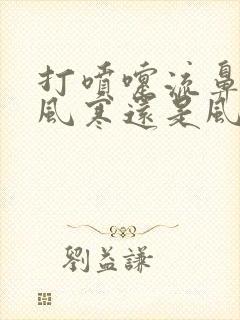 打噴嚏流鼻
風寒還是風
劉益謙